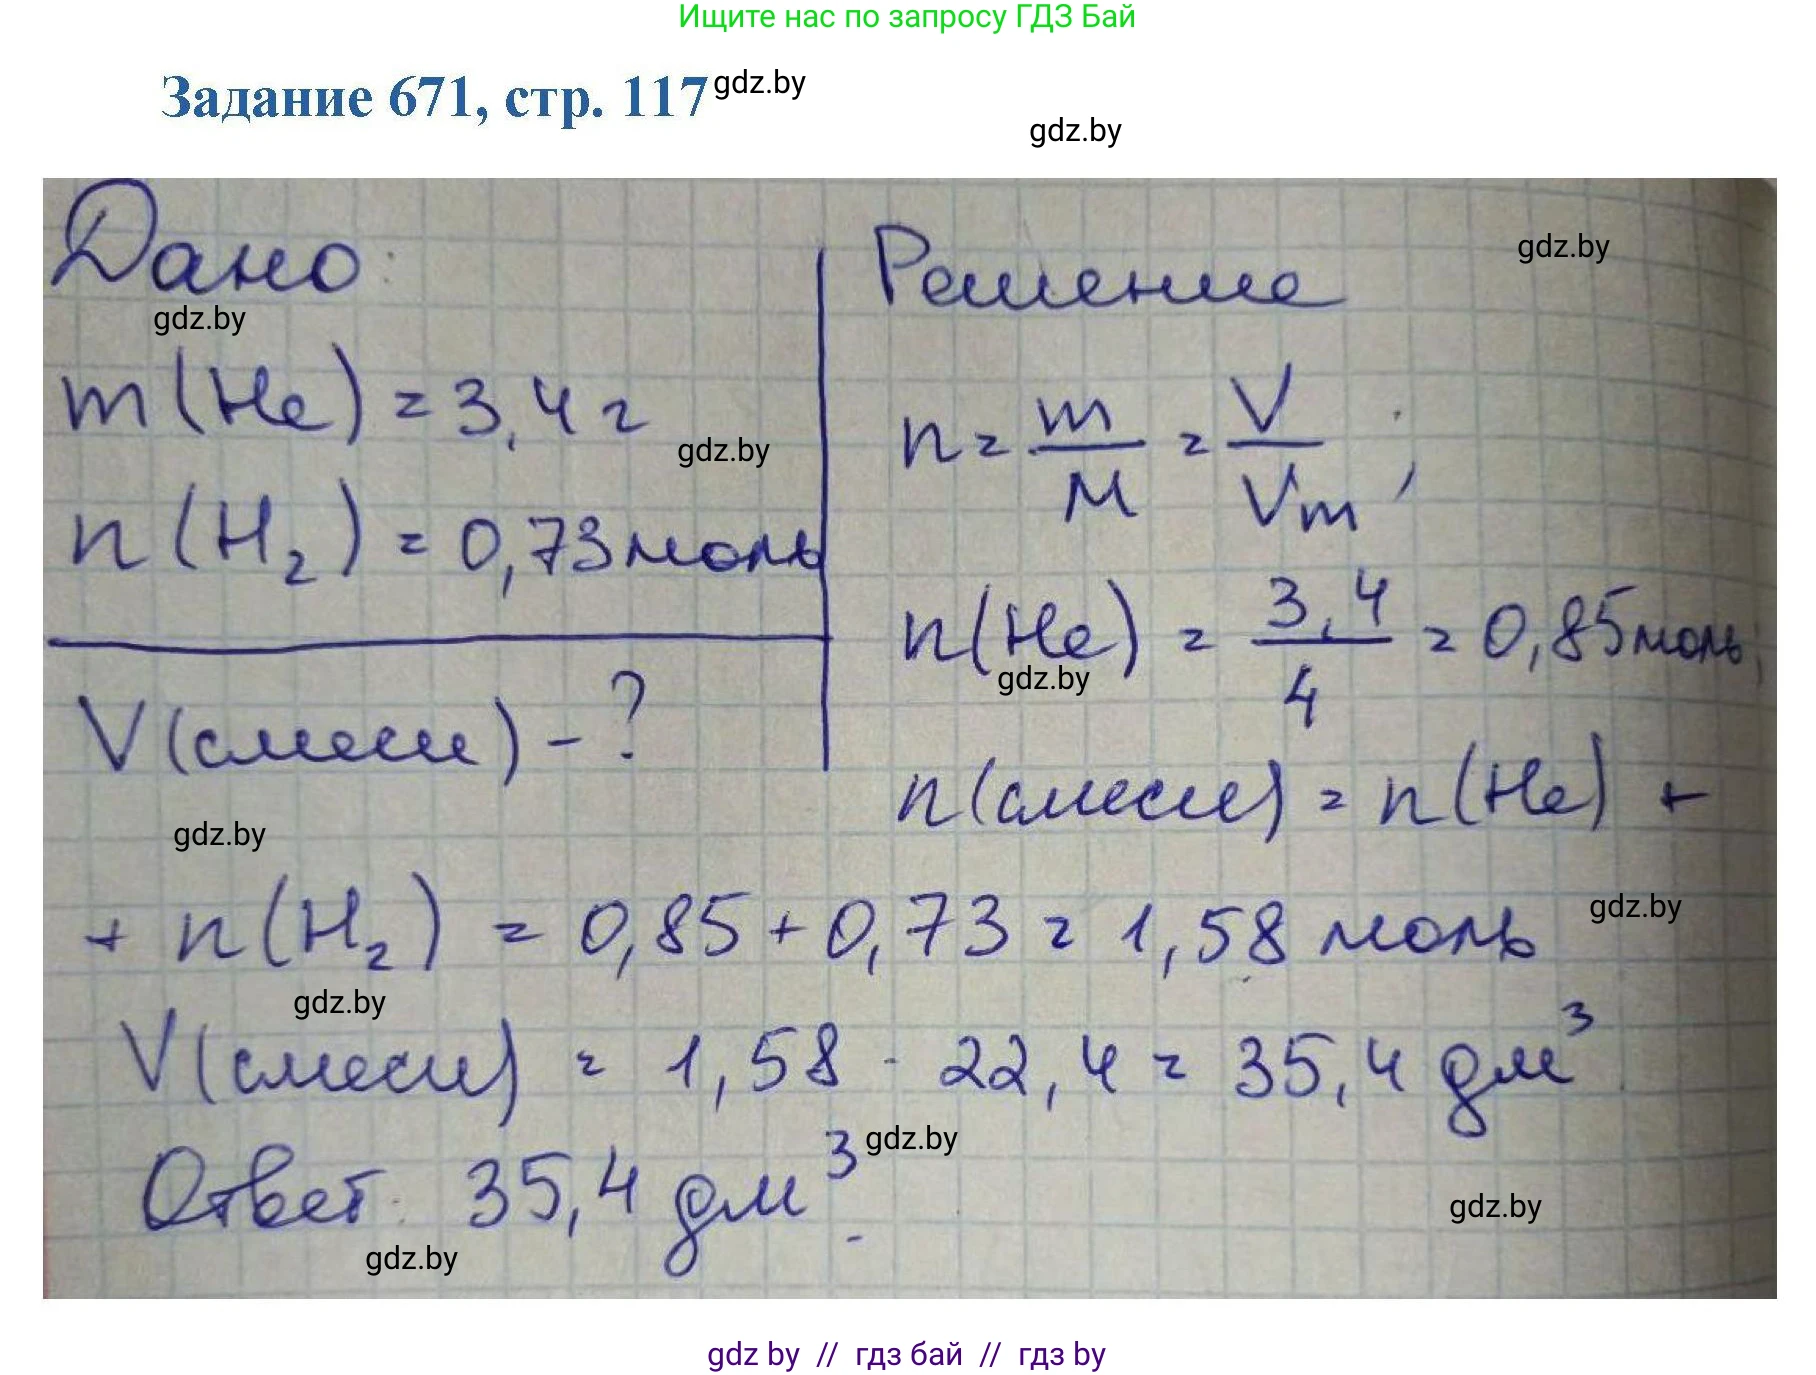 Ищите нас по запросу ГДЗ Бай
Задание 671, стр. 117 gdz.by
gdz.by
Дано:
Решение
gdz.by
gdz.by
m(He) = 3,4 г
n = m/M = V/Vm;
gdz.by
n(H₂) = 0,73 моль
n(He) = 3,4/4 = 0,85 моль;
gdz.by
V(смеси) - ?
n(смеси) = n(He) +
gdz.by
+ n(H₂) = 0,85 + 0,73 = 1,58 моль
gdz.by
gdz.by
V(смеси) = 1,58 · 22,4 = 35,4 дм³.
gdz.by
Ответ: 35,4 дм³.
gdz.by
gdz.by
gdz by // гдз бай // гдз by